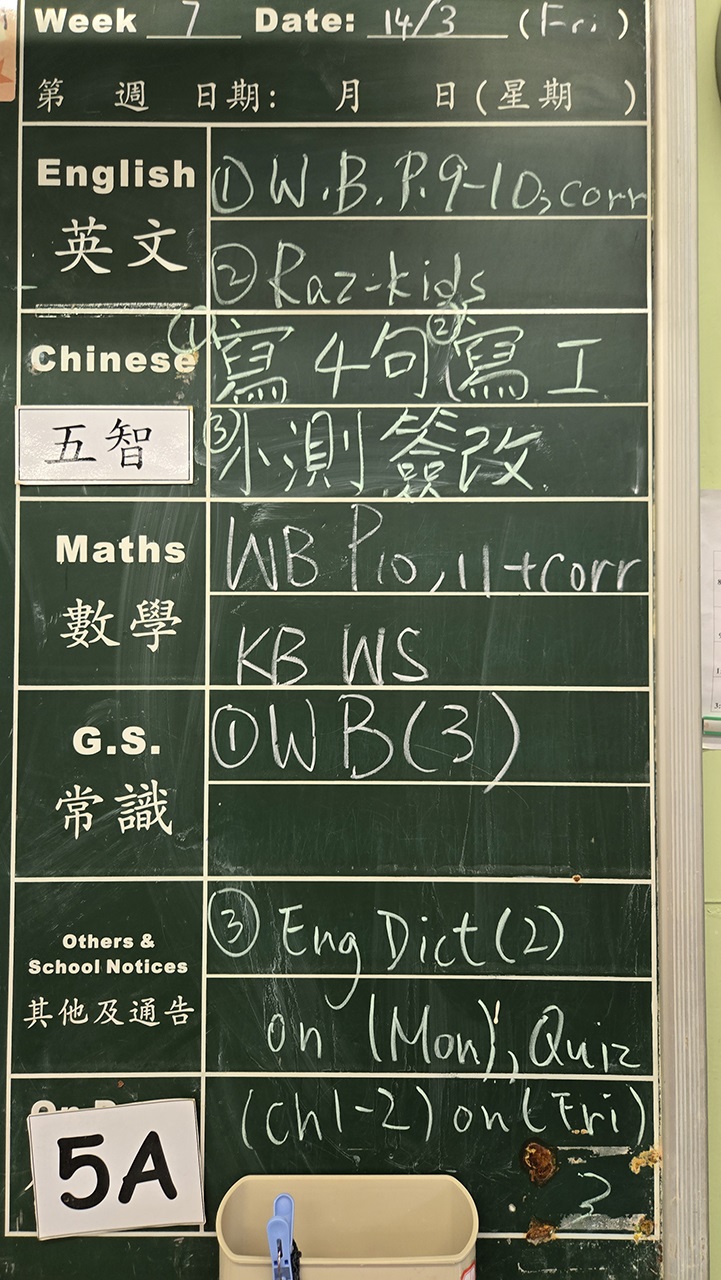 Week 7 Date: 14/3 (Fri)
第 週 日期: 月 日(星期 )
English ①W.B.P.9-10; corr
英文 ②Raz-kids
Chinese ①寫4句 ②寫工
五智 ③小測簽改
Maths WB P10, 11 + corr
數學 KB WS
G.S. ①WB(3)
常識
Others & ③ Eng Dict (2)
School Notices
其他及通告 on (Mon), Quiz
(Ch1-2) on (Fri)
5A
3